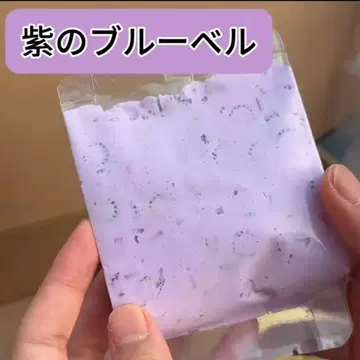 紫のブルーベル